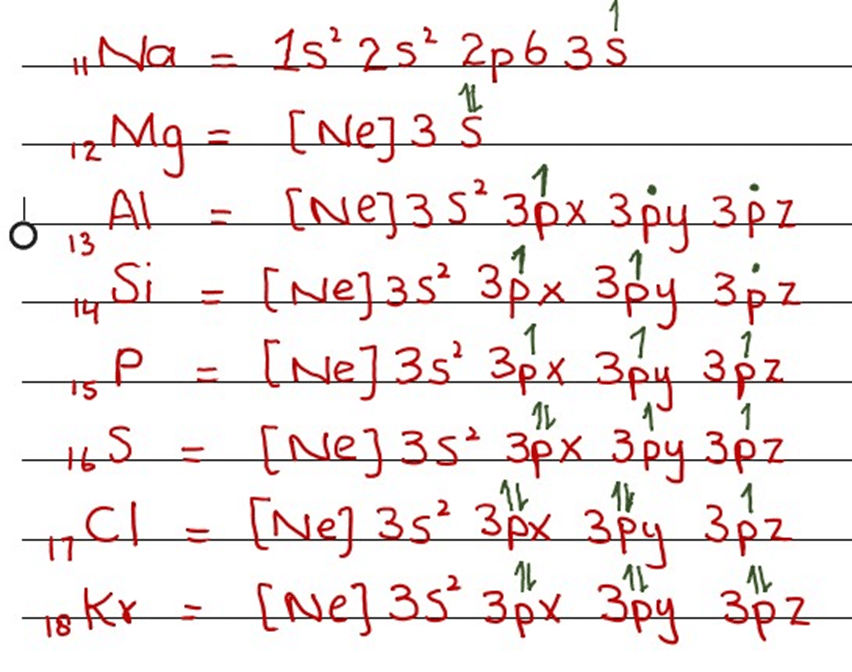 ₁₁Na = 1s² 2s² 2p6 3s↿
₁₂Mg = [Ne] 3s⥮
₁₃Al = [Ne] 3s² 3p↿x 3ṗy 3ṗz
₁₄Si = [Ne] 3s² 3p↿x 3p↿y 3ṗz
₁₅P = [Ne] 3s² 3p↿x 3p↿y 3p↿z
₁₆S = [Ne] 3s² 3p⥮x 3p↿y 3p↿z
₁₇Cl = [Ne] 3s² 3p⥮x 3p⥮y 3p↿z
₁₈Kr = [Ne] 3s² 3p⥮x 3p⥮y 3p⥮z